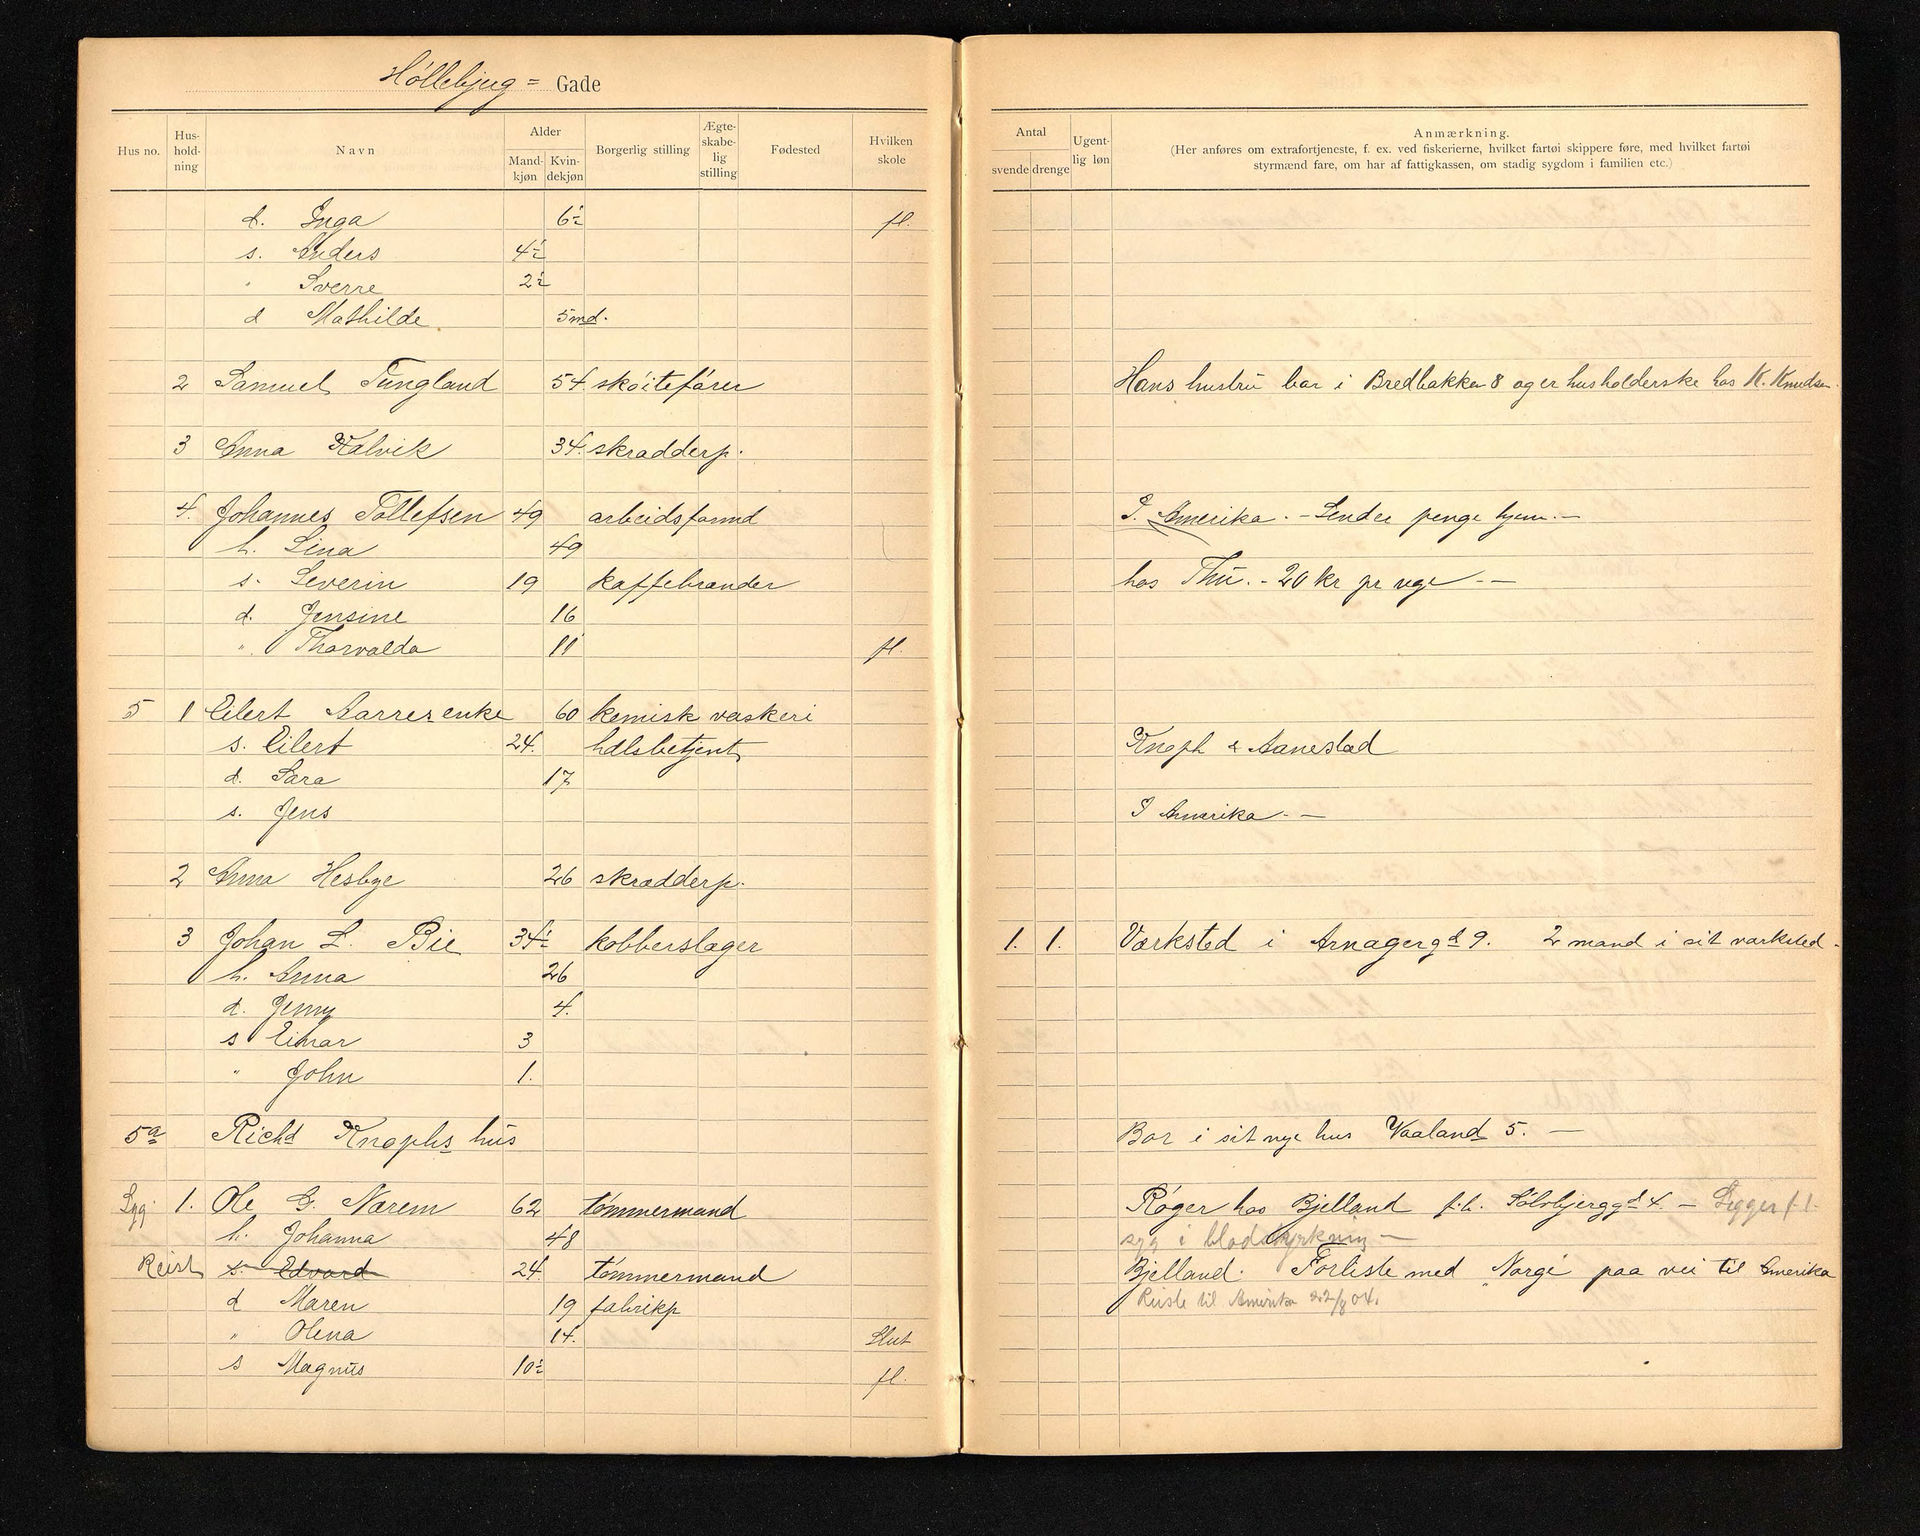 Höllebjug = Gade
Hus no. Hus-holdning Navn Alder Mandkjøn Kvindekjøn Borgerlig stilling Ægteskabelig stilling Fødested Hvilken skole Antal svende drenge Ugentlig løn Anmærkning.
(Her anføres om extrafortjeneste, f. ex. ved fiskerierne, hvilket fartøi skippere føre, med hvilket fartøi
styrmænd fare, om har af fattigkassen, om stadig sygdom i familien etc.)
d. Inga 6½ fl.
s. Anders 4½
" Sverre 2½
d Mathilde 5 md.
2 Samuel Tungland 54. skøitefører Hans hustru bor i Bredbakken 8 og er husholderske hos K. Knudsen.
3 Anna Kalvik 34. skradderp.
4. Johannes Tollefsen 49 arbeidsformd I Amerika. - Sender penge hjem. -
h. Lina 49
s. Severin 19 kaffebrænder hos Thu. - 20 kr pr uge - -
d. Jensine 16
" Thorvalda 11 fl.
5 1 Eilert Aarresenke 60 kemisk vaskeri
s. Eilert 24. hdlsbetjent Knoph & Aanestad
d. Sara 17
s. Jens I Amerika. -
2 Anna Hesbye 26 skrædderp.
3 Johan L. Bie 34½ kobberslager 1. 1. Værksted i Arnagergd 9. 2 mand i sit værksted.
h. Anna 26
d. Jenny 4.
s Einar 3
" John 1.
5a Richd Knophs hus Bor i sit nye hus Vaaland 5. -
Syg. 1. Ole G. Nærem 62 tømmermand Røger hos Bjelland f.h. Sølvbjerggd 4. - Ligger f.t.
h. Johanna 48 syg i blod -
Reist s. Edvard 24. tømmermand Bjelland. Forliste med "Norge" paa vei til Amerika
d Maren 19 fabrikp Reiste til Amerika 22/8 04.
" Olena 14. Slut
s Magnus 10½ fl.